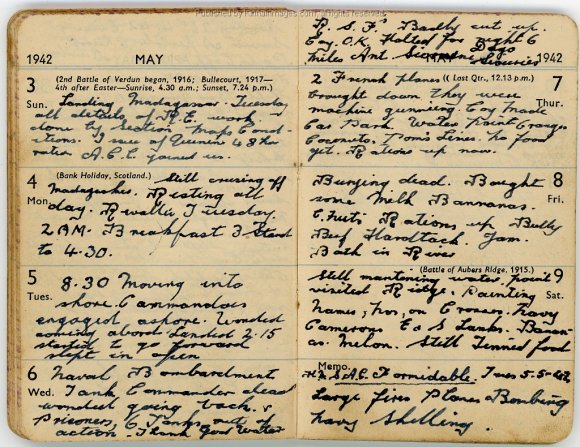 1942 MAY
3 (2nd Battle of Verdun began, 1916; Bullecourt, 1917—
4th after Easter—Sunrise, 4.30 a.m.; Sunset, 7.24 p.m.)
Sun. Landing Madagascar. Tuesday
all details of R.E. work
done by Section Maps Cond-
itions. Issue of Quinine & 8 hr
water A.C.C. joined us.
4 (Bank Holiday, Scotland.) Still cruising off
Mon. Resting all
day. Reveille Tuesday
2 AM. Breakfast 3 Stand
to 4-30.
5 8.30 Moving into
Tues. shore. Commandos
engaged ashore. Wonded
coming aboard Landed 2.15
started to go forward
slept in open
6 Naval Bombardment
Wed. Tank Commander dead
wonded going back. &
prisoners, 6 Tanks out of
action. Thank God Water
R. S. F. Badly cut up.
Coy O.K. Halted for night 6
miles Ant
1942
7 2 French planes (( Last Qtr., 12.13 p.m.)
Thur. brought down they were
machine gunning. Coy Made
Car Park. Water Point Oranges
Coconuts, Poms Limes. No food
yet. Rations up now.
8 Burying dead. Bought
Fri. some Milk Bannanas.
Fruit Rations up Bully
Beef Hardtack. Jam.
Bath in River
9 Still mantoning water point
(Battle of Aubers Ridge, 1915.)
Sat. visited Ridge. Painting
Names, Nos, on Crosses. Navy
Camerons E & S Lanks. Banan-
as. Melon. Still Tinned food
Memo.
H.M.S A.C. Formidable. Tues 5-5-42
Large fires Planes Bombing
Navy Shelling.
Published by Footballimages.com. All rights reserved.